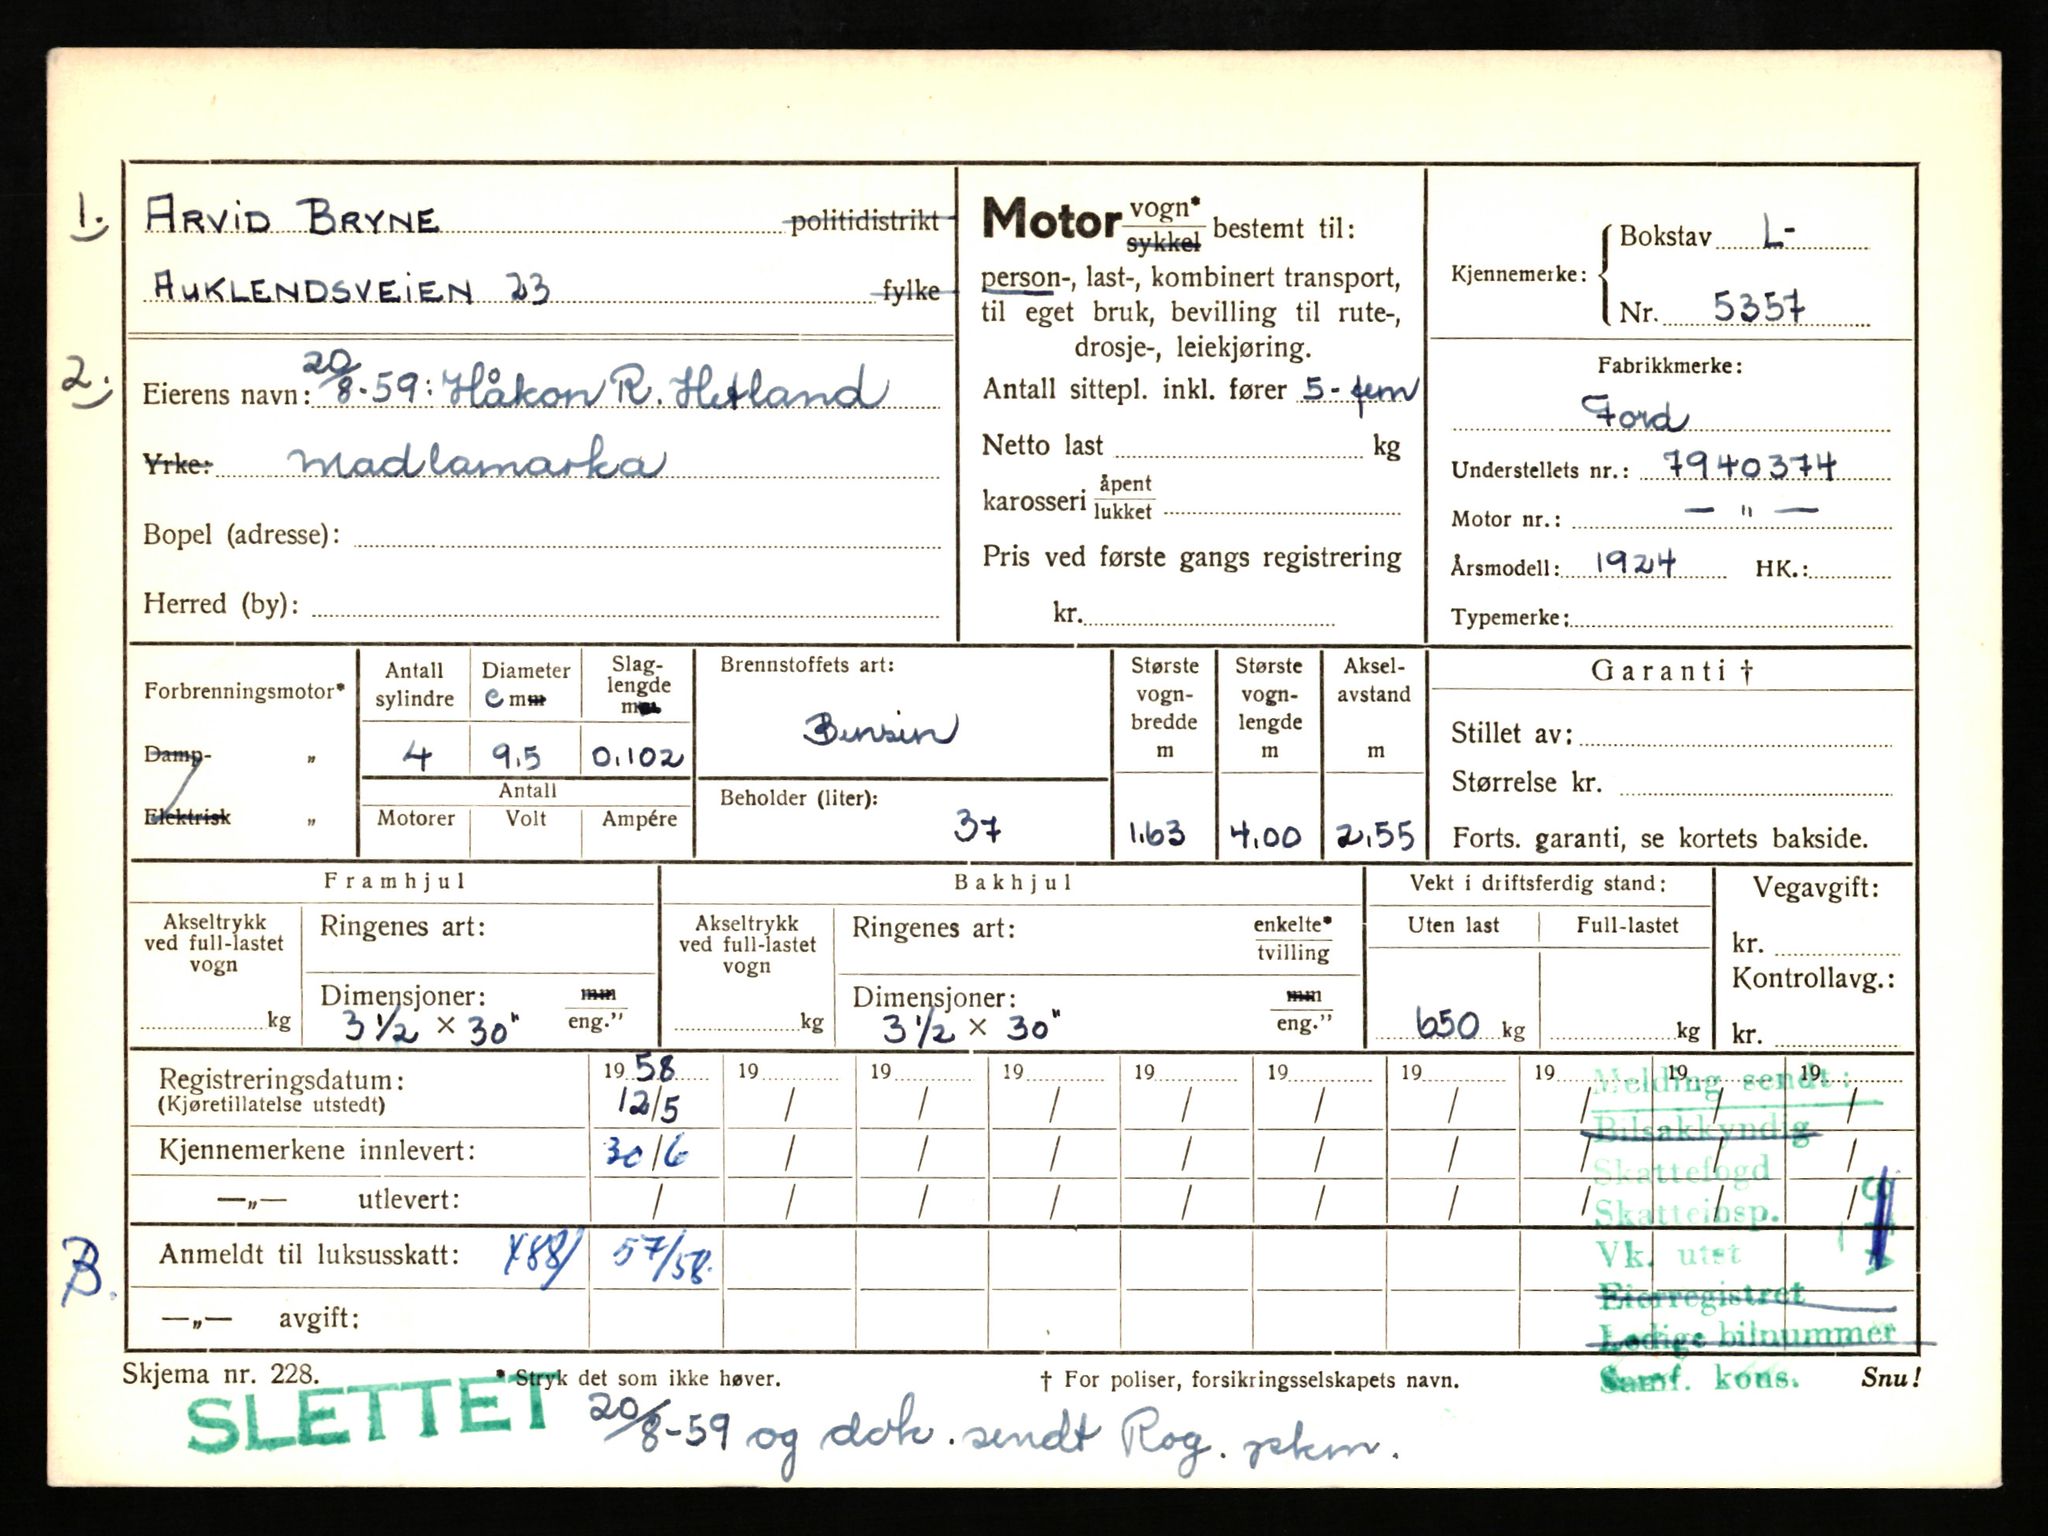 1. ARVID BRYNE politidistrikt
AUKLENDSVEIEN 23 fylke
2. Eierens navn: 20/8-59: Håkon R. Hetland
Yrke: Madlamarka
Bopel (adresse):
Herred (by):
Motor vogn* / sykkel bestemt til:
person-, last-, kombinert transport,
til eget bruk, bevilling til rute-,
drosje-, leiekjøring.
Antall sittepl. inkl. fører 5-fem
Netto last kg
karosseri åpent / lukket
Pris ved første gangs registrering
kr.
Kjennemerke: Bokstav L-
Nr. 5357
Fabrikkmerke:
Ford
Understellets nr.: 7940374
Motor nr.: — " —
Årsmodell: 1924 HK.:
Typemerke:
Forbrenningsmotor*
Damp- „
Elektrisk „
Antall sylindre
Diameter c mm
Slag-
lengde
mm
4 9,5 0,102
Antall
Motorer Volt Ampére
Brennstoffets art:
Bensin
Beholder (liter):
37
Største
vogn-
bredde
m
1.63
Største
vogn-
lengde
m
4,00
Aksel-
avstand
m
2,55
Garanti †
Stillet av:
Størrelse kr.
Forts. garanti, se kortets bakside.
Framhjul
Akseltrykk
ved full-lastet
vogn
kg
Ringenes art:
Dimensjoner: mm / eng."
3 1/2 × 30"
Bakhjul
Akseltrykk
ved full-lastet
vogn
kg
Ringenes art: enkelte* / tvilling
Dimensjoner: mm / eng."
3 1/2 × 30"
Vekt i driftsferdig stand:
Uten last Full-lastet
650 kg kg
Vegavgift:
kr.
Kontrollavg.:
kr.
Registreringsdatum: 19 58 19 19 19 19 19 19 19 19 19
(Kjøretillatelse utstedt) 12/5 / / / / / / / / /
Kjennemerkene innlevert: 30/6 / / / / / / / / /
—„— utlevert: / / / / / / / / / /
B. Anmeldt til luksusskatt: 57/58.
—„— avgift:
Melding sendt:
Bilsakkyndig
Skattefogd
Skatteinsp.
Vk. utst
Eierregistret
Ledige bilnummer
Samf. kons.
Skjema nr. 228. * Stryk det som ikke høver. † For poliser, forsikringsselskapets navn. Snu!
SLETTET 20/8-59 og dok. sendt Rog.